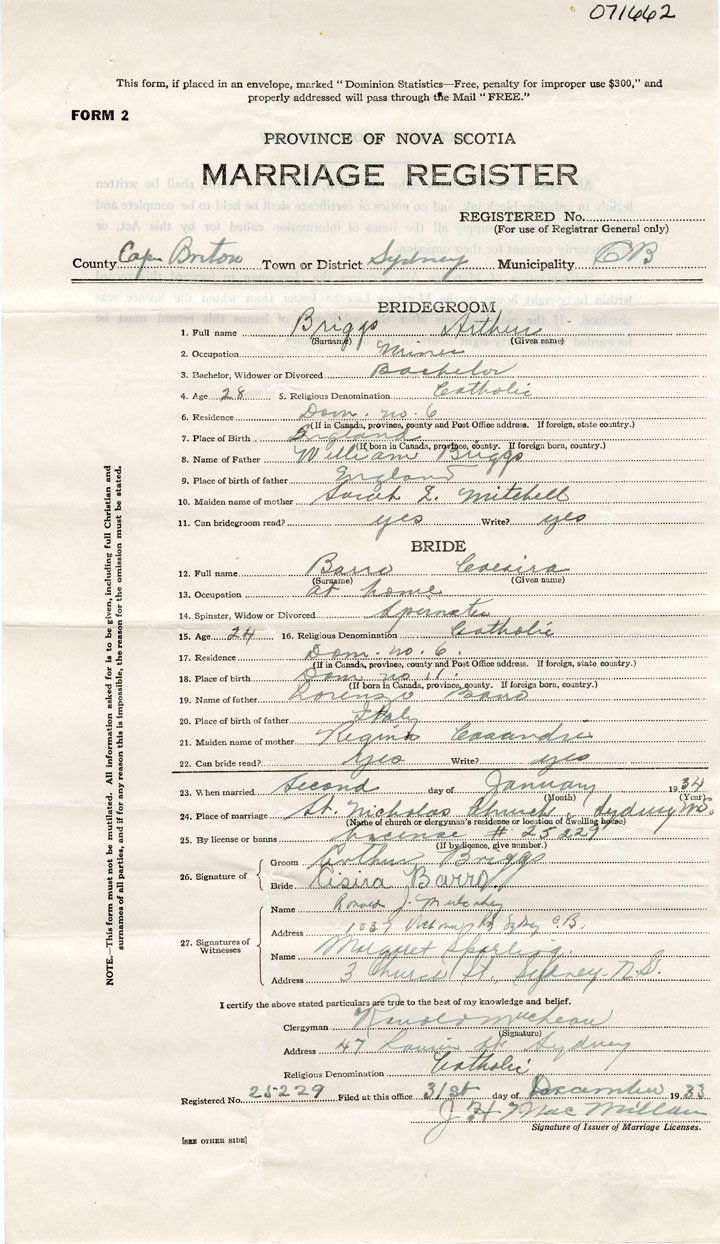 071662
This form, if placed in an envelope, marked "Dominion Statistics—Free, penalty for improper use $300," and
properly addressed will pass through the Mail "FREE."
FORM 2
PROVINCE OF NOVA SCOTIA
MARRIAGE REGISTER
REGISTERED No.
(For use of Registrar General only)
County Cape Breton Town or District Sydney Municipality CB
BRIDEGROOM
1. Full name Briggs Arthur
(Surname) (Given name)
2. Occupation Miner
3. Bachelor, Widower or Divorced Bachelor
4. Age 28 5. Religious Denomination Catholic
6. Residence Dom. no. 6
(If in Canada, province, county and Post Office address. If foreign, state country.)
7. Place of Birth England
(If born in Canada, province, county. If foreign born, country.)
8. Name of Father William Briggs
9. Place of birth of father England
10. Maiden name of mother Sarah E. Mitchell
11. Can bridegroom read? yes Write? yes
BRIDE
12. Full name Barro Caesira
(Surname) (Given name)
13. Occupation at home
14. Spinster, Widow or Divorced Spinster
15. Age 24 16. Religious Denomination Catholic
17. Residence Dom. no. 6.
(If in Canada, province, county and Post Office address. If foreign, state country.)
18. Place of birth Dom no 11.
(If born in Canada, province, county. If foreign born, country.)
19. Name of father Lorenzo Barro
20. Place of birth of father Italy
21. Maiden name of mother Regina
22. Can bride read? yes Write? yes
23. When married Second day of January 1934
(Month) (Year)
24. Place of marriage St. Nicholas Church, Sydney N.S.
(Name of church or clergyman's residence or location of dwelling house)
25. By license or banns License # 25229
(If by licence, give number.)
26. Signature of
Groom Arthur Briggs
Bride Cisira Barro.
27. Signatures of Witnesses
Name Ronald J.
Address 1037 C.B.
Name Margaret
Address 3 Church St., Sydney. N.S.
I certify the above stated particulars are true to the best of my knowledge and belief.
Clergyman
(Signature)
Address 47 St Sydney
Religious Denomination Catholic
Registered No. 25229 Filed at this office 31st day of December 1933
J H MacMillan
Signature of Issuer of Marriage Licenses.
[SEE OTHER SIDE]
NOTE.—This form must not be mutilated. All information asked for is to be given, including full Christian and
surnames of all parties, and if for any reason this is impossible, the reason for the omission must be stated.